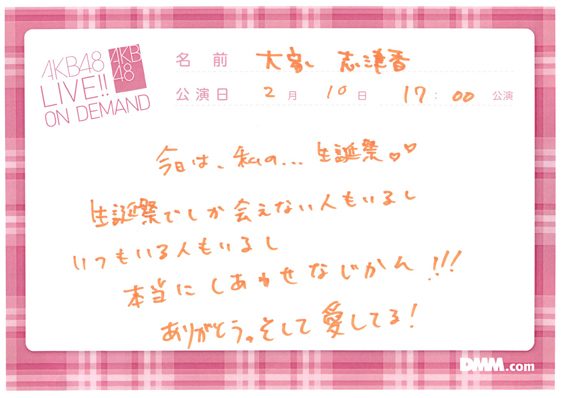 AKB48
LIVE!!
ON DEMAND
AKB
48
名前 大家 志津香
公演日 2月 10日 17:00 公演
今日は、私の... 生誕祭♡♡
生誕祭でしか会えない人もいるし
いつもいる人もいるし
本当にしあわせなじかん!!!
ありがとう。そして愛してる!
DMM.com